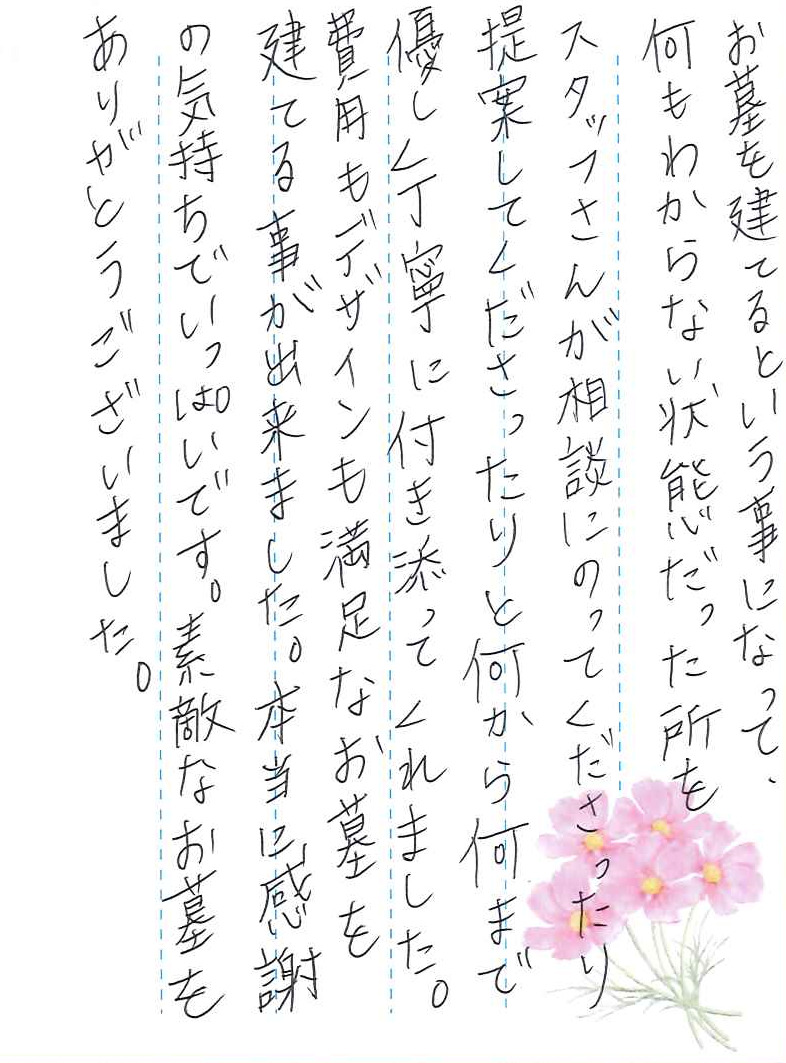 お墓を建てるという事になって、
何もわからない状態だった所を
スタッフさんが相談にのってくださったり
提案してくださったりと何から何まで
優しく丁寧に付き添ってくれました。
費用もデザインも満足なお墓を
建てる事が出来ました。本当に感謝
の気持ちでいっぱいです。素敵なお墓を
ありがとうございました。